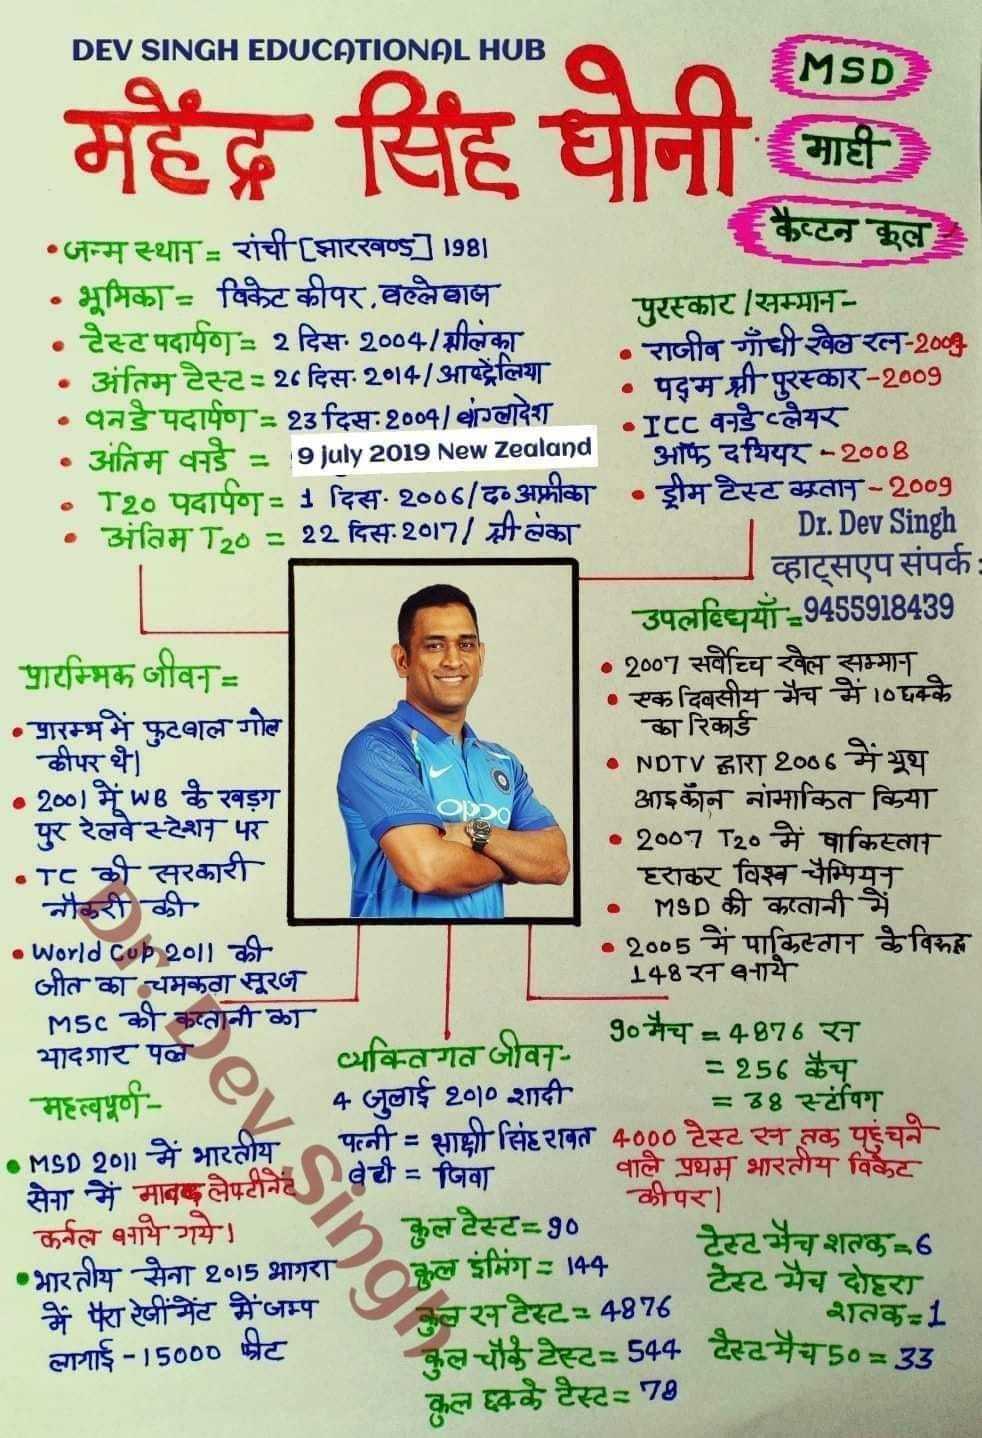 DEV SINGH EDUCATIONAL HUB
महेंद्र सिंह धोनी
MSD
माही
कैप्टन कूल
• जन्म स्थान = रांची [झारखण्ड] 1981
• भूमिका = विकेट कीपर, बल्लेबाज
• टेस्ट पदार्पण = 2 दिस. 2004/श्रीलंका
• अंतिम टेस्ट = 26 दिस. 2014/आस्ट्रेलिया
• वनडे पदार्पण = 23 दिस. 2004/बांग्लादेश
• अंतिम वनडे = 9 july 2019 New Zealand
• T20 पदार्पण = 1 दिस. 2006/द० अफ्रीका
• अंतिम T20 = 22 दिस. 2017/ श्री लंका
पुरस्कार/सम्मान-
• राजीव गाँधी खेल रत्न-2007
• पद्म श्री पुरस्कार-2009
• ICC वनडे प्लेयर
ऑफ द यियर - 2008
• ड्रीम टेस्ट कप्तान - 2009
Dr. Dev Singh
व्हाट्सएप संपर्क :
9455918439
प्रारम्भिक जीवन =
• प्रारम्भ में फुटबाल गोल
कीपर थे।
• 2001 में WB के खड़ग
पुर रेलवे स्टेशन पर
• TC की सरकारी
नौकरी की
• World Cup 2011 की
जीत का चमकता सूरज
MSC की कप्तानी का
यादगार पल
उपलब्धियाँ =
• 2007 सर्वोच्च खेल सम्मान
• एक दिवसीय मैच में 10 छक्के
का रिकार्ड
• NDTV द्वारा 2006 में यूथ
आइकॉन नांमाकित किया
• 2007 T20 में पाकिस्तान
हराकर विश्व चैम्पियन
• MSD की कप्तानी में
• 2005 में पाकिस्तान के विरुद्ध
148 रन बनाये
महत्वपूर्ण-
• MSD 2011 में भारतीय
सेना में मानक लेफ्टीनेंट
कर्नल बनाये गये।
• भारतीय सेना 2015 आगरा
में पैरा रेजीमेंट में जम्प
लगाई - 15000 फीट
व्यक्तिगत जीवन-
4 जुलाई 2010 शादी
पत्नी = साक्षी सिंह रावत
बेटी = जिवा
कुल टेस्ट = 90
कुल इंनिंग = 144
कुल रन टेस्ट = 4876
कुल चौके टेस्ट = 544
कुल छक्के टेस्ट = 78
90 मैच = 4876 रन
= 256 कैच
= 38 स्टंपिग
4000 टेस्ट रन तक पहुंचने
वाले प्रथम भारतीय विकेट
कीपर।
टेस्ट मैच शतक = 6
टेस्ट मैच दोहरा
शतक = 1
टेस्ट मैच 50 = 33
OPPO
Dr. Dev Singh